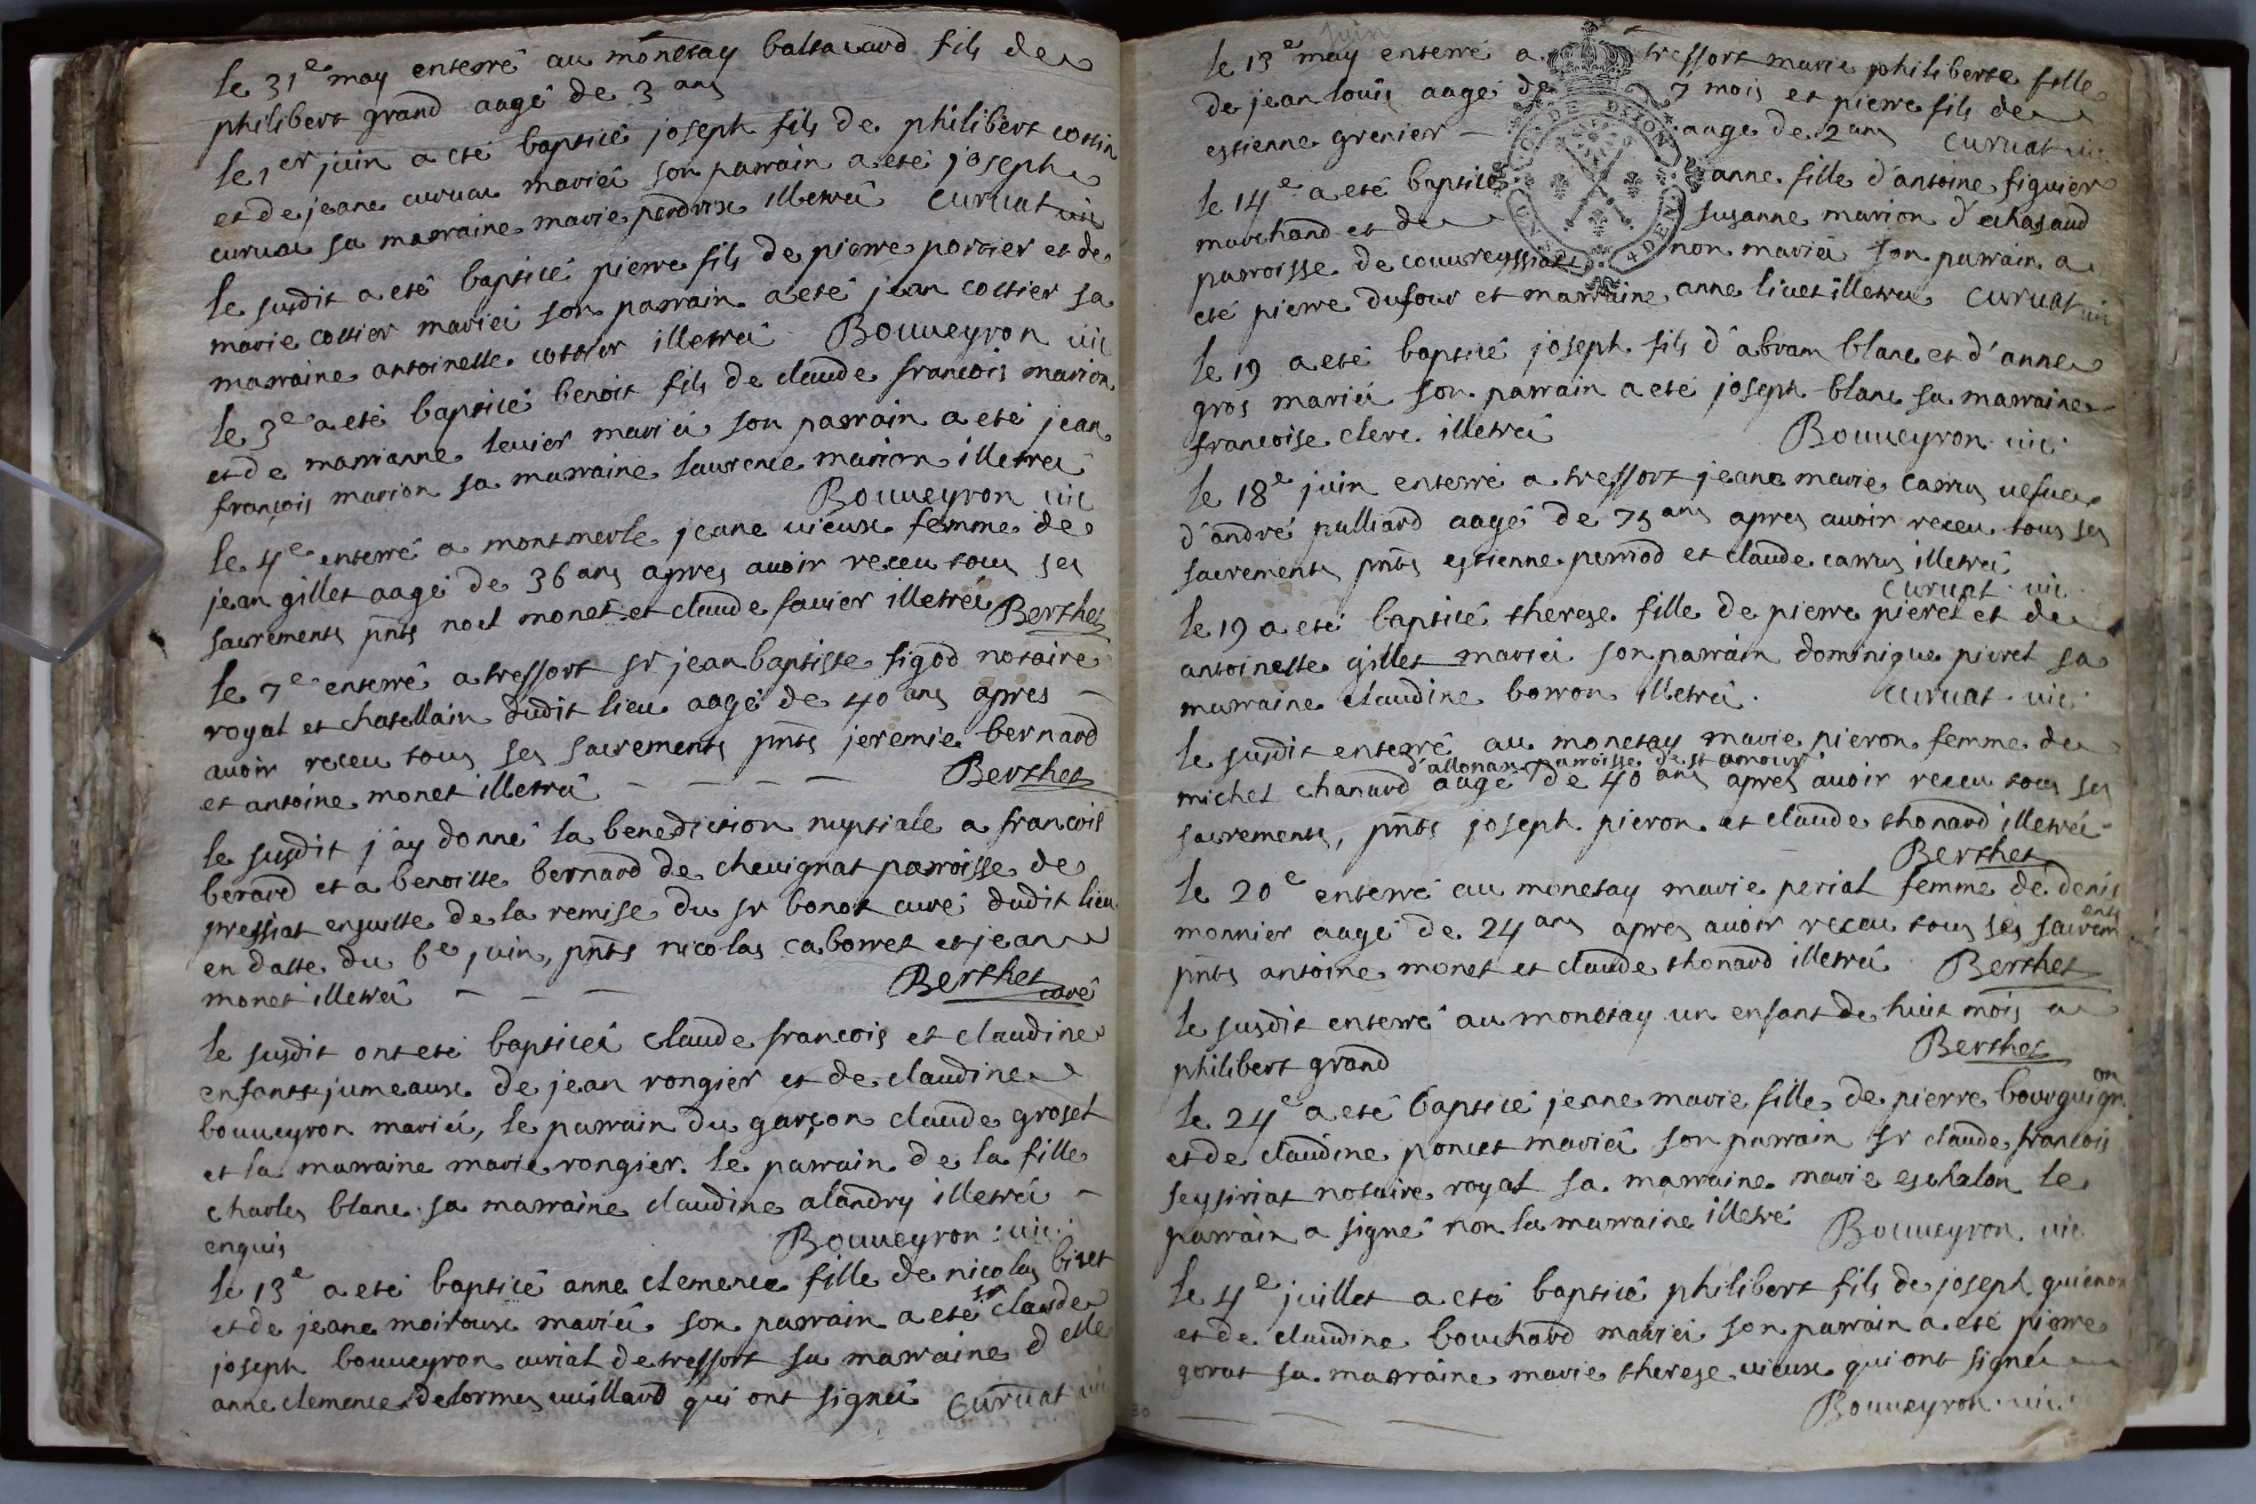 le 31e may enterré au monetay baltazard fils de
philibert grand aagé de 3 ans
le 1er juin a eté bapticé joseph fils de philibert cottin
et de jeane curvat mariéz son parrain a eté joseph
curvat sa marraine marie perdrix illetréz curvat vic
le susdit a eté bapticé pierre fils de pierre portier et de
marie cottier mariéz son parrain a eté jean cottier sa
marraine antoinette cottier illetréz Bouueyron vic
le 3e a eté bapticé benoit fils de claude françois marion
et de marrianne levier mariéz son parrain a eté jean
françois marion sa marraine laurence marion illetréz
Bouueyron vic
le 4e enterré a montmerle jeane vieux femme de
jean gillet aagé de 36 ans apres avoir receu tous ses
sacrements pnts noel monet et claude favier illetréz Berthet
le 7e enterré a tressort sr jean baptiste sigod notaire
royal et chatellain dudit lieu aagé de 40 ans apres
avoir receu tous ses sacrements pnts jeremie bernard
et antoine monet illetréz Berthet
le susdit j'ay donné la benediction nuptiale a françois
berard et a benoitte bernard de chevignat parroisse de
pressiat ensuitte de la remise du sr bonot curé dudit lieu
en datte du 6e juin, pnts nicolas caborret et jean
monet illetréz Berthet curé
le susdit ont eté bapticéz claude françois et claudine
enfants jumeaux de jean rongier et de claudine
bouueyron mariéz, le parrain du garçon claude groset
et la marraine marie rongier. le parrain de la fille
charles blanc sa marraine claudine alandry illetréz
enquis Bouueyron vic
le 13e a eté bapticé anne clemence fille de nicolas bizet
et de jeane moiroux mariéz son parrain a eté sr claude
joseph bouueyron curial de tressort sa marraine delle
anne clemence delormes vuillard qui ont signéz Curvat vic
juin
le 13e may enterré a tressort marie philiberte fille
de jean louis aagé de 7 mois et pierre fils de
estienne grenier aagé de 2 ans curvat vic
le 14e a eté bapticé anne fille d'antoine figuier
marchand et de susanne marion d'echasaud
parroisse de non mariéz son parrain a
eté pierre dufour et marraine anne livet illetréz curvat vic
le 19 a eté bapticé joseph fils d'abram blanc et d'anne
gros mariéz son parrain a eté joseph blanc sa marraine
françoise clerc illetréz Bouueyron vic
le 18e juin enterré a tressort jeane marie carrus vefve
d'andré palliard aagé de 75 ans apres avoir receu tous ses
sacrements pnts estienne perrod et claude carrus illetréz
curvat vic
le 19 a eté bapticé therese fille de pierre pieret et de
antoinette gillet mariéz son parrain dominique pieret sa
marraine claudine borron illetréz curvat vic
le susdit enterré au monetay marie pieron femme de
d'allonax parroisse de st amour
michel chanard aagé de 40 ans apres avoir receu tous ses
sacrements, pnts joseph pieron et claude thonard illetréz
Berthet
le 20e enterré au monetay marie perial femme de denis
monnier aagé de 24 ans apres avoir receu tous ses sacrements
pnts antoine monet et claude thonard illetréz Berthet
le susdit enterré au monetay un enfant de huit mois a
philibert grand Berthet
le 24e a eté bapticé jeane marie fille de pierre bourguignon
et de claudine poncet mariéz son parrain sr claude françois
seysiriat notaire royal sa marraine marie eschalon le
parrain a signé non la marraine illetré Bouueyron vic
le 4e juillet a eté bapticé philibert fils de joseph guénon
et de claudine bouchard mariéz son parrain a eté pierre
gorat sa marraine marie therese vieux qui ont signéz
Bouueyron vic
30